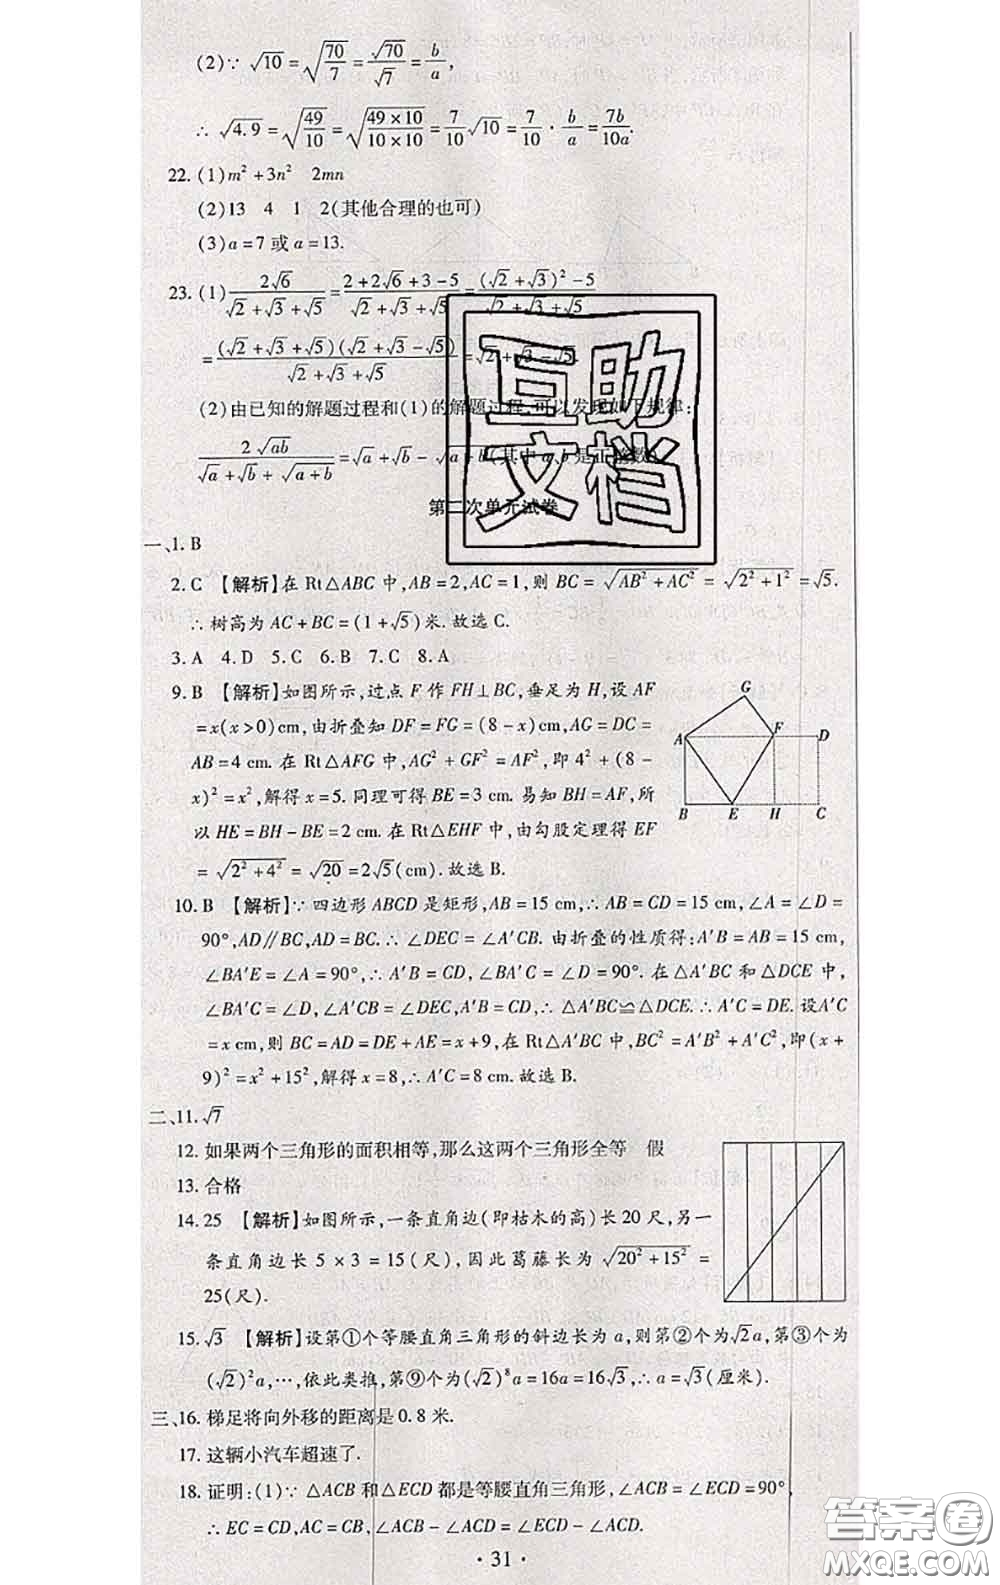 (2)∵ √10 = √(70/7) = √70/√7 = b/a,
∴ √4.9 = √(49/10) = √((49×10)/(10×10)) = 7/10 √10 = 7/10 · b/a = 7b/10a.
22. (1) m² + 3n²  2mn
(2) 13  4  1  2(其他合理的也可)
(3) a = 7 或 a = 13.
23. (1) 2√6/(√2+√3+√5) = (2+2√6+3-5)/(√2+√3+√5) = ((√2+√3)²-5)/(√2+√3+√5)
= (√2+√3+√5)(√2+√3-√5)/(√2+√3+√5) = √2+√3-√5.
(2)由已知的解题过程和(1)的解题过程,可以发现如下规律:
2√ab/(√a+√b+√(a+b)) = √a+√b-√(a+b)(其中 a,b 是正整数)
互助
文档
第二次单元试卷
一、1. B
2. C 【解析】在 Rt△ABC 中,AB=2,AC=1,则 BC=√(AB²+AC²)=√(2²+1²)=√5.
∴ 树高为 AC+BC=(1+√5)米.故选 C.
3. A  4. D  5. C  6. B  7. C  8. A
9. B 【解析】如图所示,过点 F 作 FH⊥BC,垂足为 H,设 AF
=x(x>0)cm,由折叠知 DF=FG=(8-x)cm,AG=DC=
AB=4 cm. 在 Rt△AFG 中,AG²+GF²=AF²,即 4²+(8-
x)²=x²,解得 x=5. 同理可得 BE=3 cm. 易知 BH=AF,所
以 HE=BH-BE=2 cm. 在 Rt△EHF 中,由勾股定理得 EF
=√(2²+4²)=√20=2√5(cm).故选 B.
G
A F D
B E H C
10. B 【解析】∵ 四边形 ABCD 是矩形,AB=15 cm,∴ AB=CD=15 cm,∠A=∠D=
90°,AD∥BC,AD=BC. ∴ ∠DEC=∠A′CB. 由折叠的性质得:A′B=AB=15 cm,
∠BA′E=∠A=90°,∴ A′B=CD,∠BA′C=∠D=90°. 在△A′BC 和△DCE 中,
∠BA′C=∠D,∠A′CB=∠DEC,A′B=CD,∴ △A′BC≌△DCE. ∴ A′C=DE. 设A′C
=x cm,则 BC=AD=DE+AE=x+9,在 Rt△A′BC 中,BC²=A′B²+A′C²,即(x+
9)²=x²+15²,解得 x=8,∴ A′C=8 cm.故选 B.
二、11. √7
12. 如果两个三角形的面积相等,那么这两个三角形全等  假
13. 合格
14. 25 【解析】如图所示,一条直角边(即枯木的高)长 20 尺,另一
条直角边长 5×3=15(尺),因此葛藤长为 √(20²+15²)=
25(尺).
15. √3 【解析】设第①个等腰直角三角形的斜边长为 a,则第②个为√2a,第③个为
(√2)²a,…,依此类推,第⑨个为(√2)⁸a=16a=16√3,∴ a=√3(厘米).
三、16. 梯足将向外移的距离是 0.8 米.
17. 这辆小汽车超速了.
18. 证明:(1)∵ △ACB 和△ECD 都是等腰直角三角形,∠ACB=∠ECD=90°,
∴ EC=CD,AC=CB,∠ACB-∠ACD=∠ECD-∠ACD.
· 31 ·
答案圈
MXQE.COM